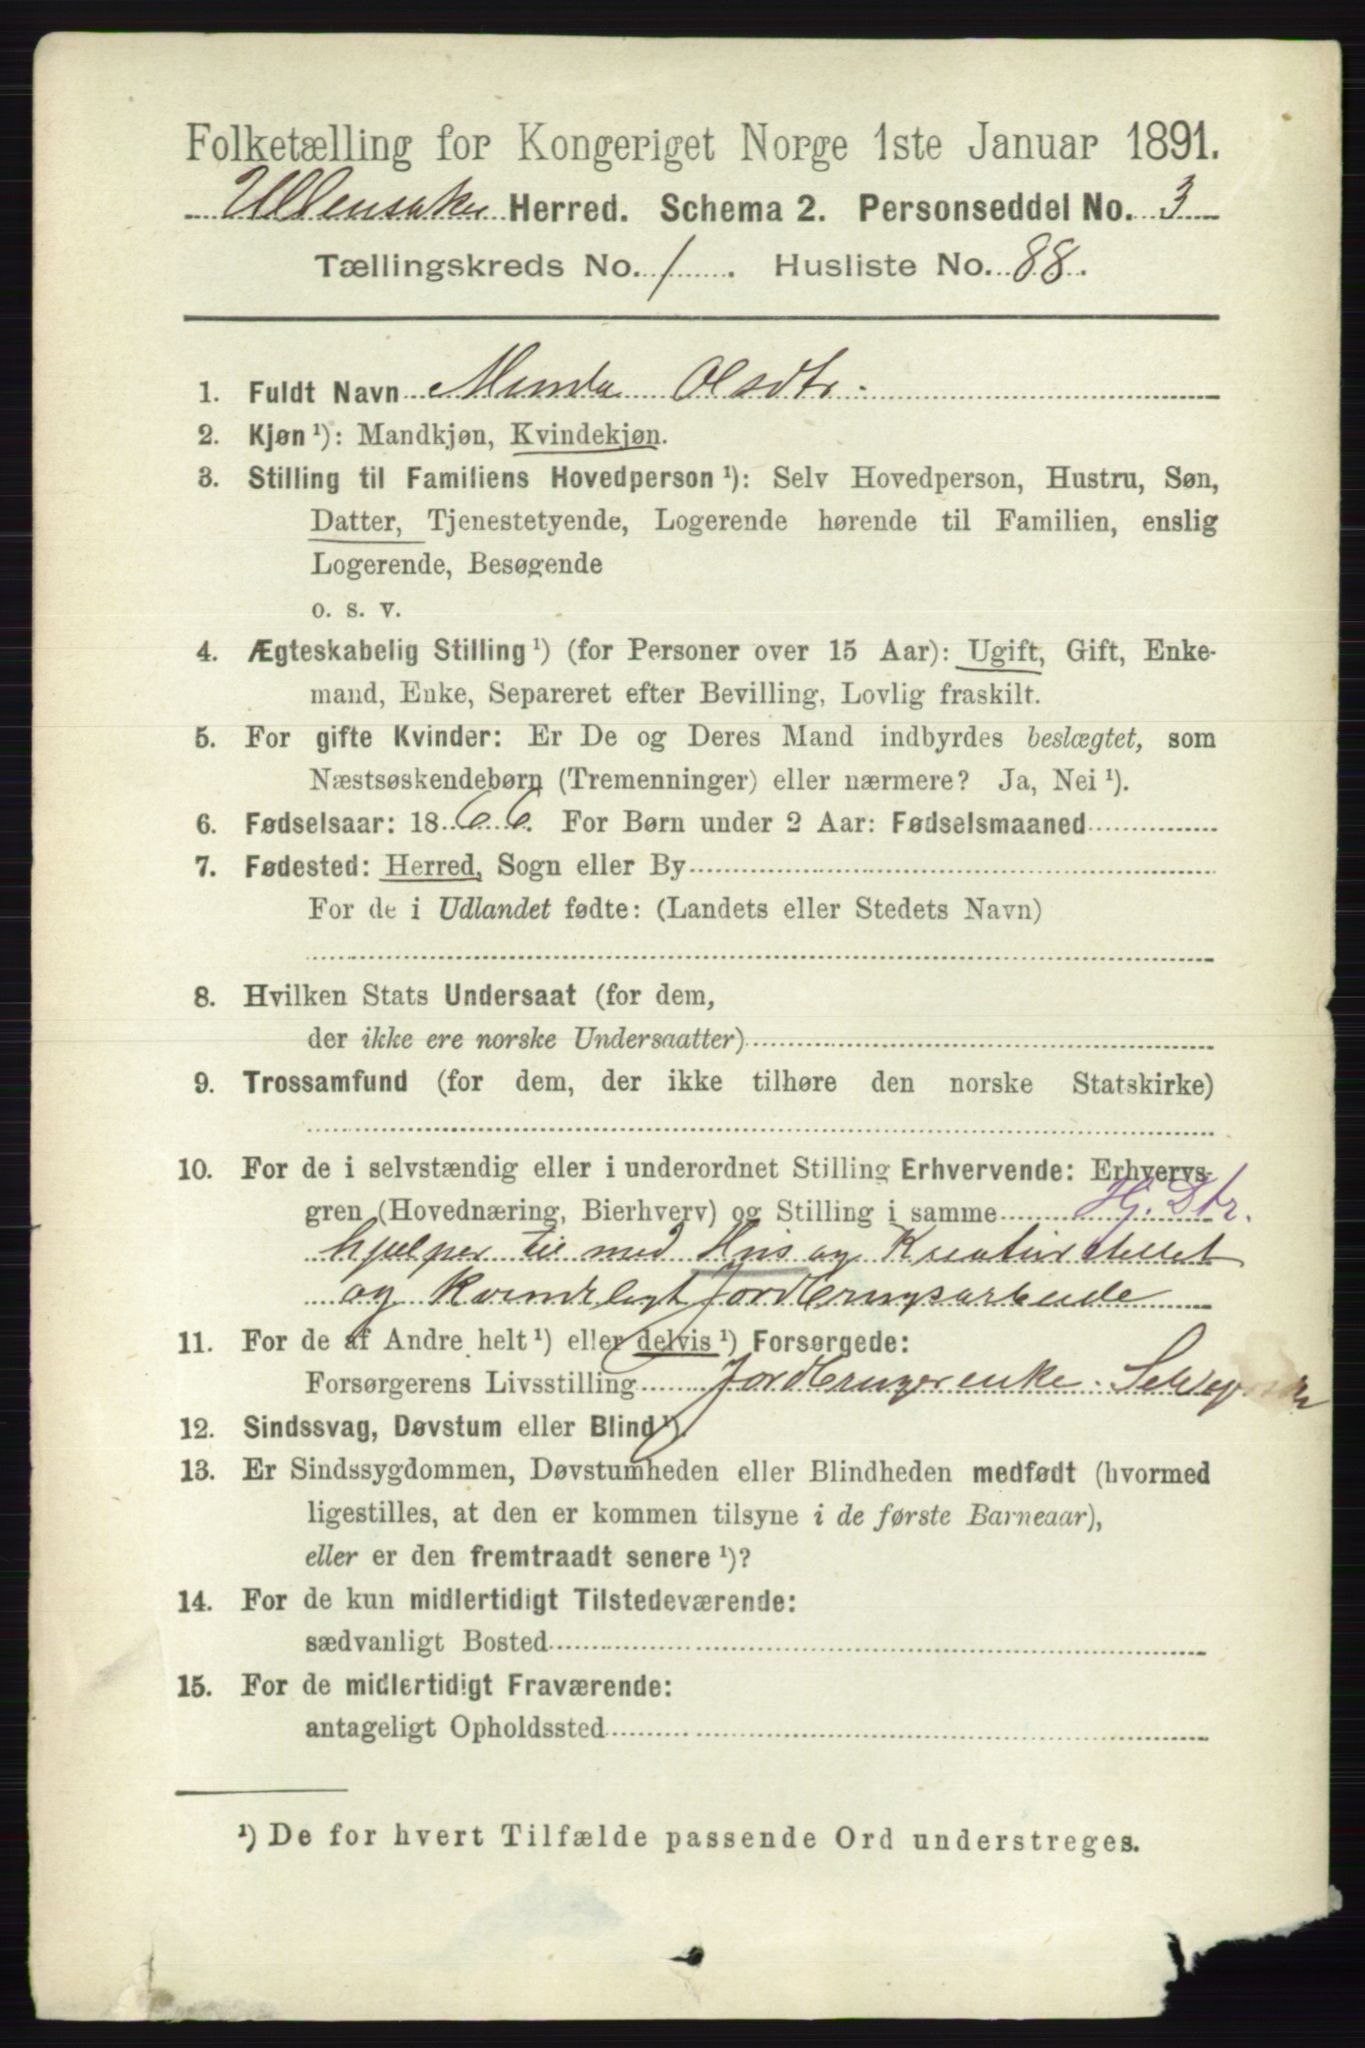 Folketælling for Kongeriget Norge 1ste Januar 1891.
Ullensaker Herred. Schema 2. Personseddel No. 3
Tællingskreds No. 1. Husliste No. 88.
1. Fuldt Navn Olsdtr.
2. Kjøn ¹): Mandkjøn, Kvindekjøn.
3. Stilling til Familiens Hovedperson ¹): Selv Hovedperson, Hustru, Søn,
Datter, Tjenestetyende, Logerende hørende til Familien, enslig
Logerende, Besøgende
o. s. v.
4. Ægteskabelig Stilling ¹) (for Personer over 15 Aar): Ugift, Gift, Enke-
mand, Enke, Separeret efter Bevilling, Lovlig fraskilt.
5. For gifte Kvinder: Er De og Deres Mand indbyrdes beslægtet, som
Næstsøskendebørn (Tremenninger) eller nærmere? Ja, Nei ¹).
6. Fødselsaar: 1866. For Børn under 2 Aar: Fødselsmaaned
7. Fødested: Herred, Sogn eller By
For de i Udlandet fødte: (Landets eller Stedets Navn)
8. Hvilken Stats Undersaat (for dem,
der ikke ere norske Undersaatter)
9. Trossamfund (for dem, der ikke tilhøre den norske Statskirke)
10. For de i selvstændig eller i underordnet Stilling Erhvervende: Erhvervs-
gren (Hovednæring, Bierhverv) og Stilling i samme Hj. Dtr.
hjælper til med Hus og Kreaturstellet
og kvindligt Jordbrugsarbeide
11. For de af Andre helt ¹) eller delvis ¹) Forsørgede:
Forsørgerens Livsstilling Jordbrugerenke. Selveier
12. Sindssvag, Døvstum eller Blind ¹).
13. Er Sindssygdommen, Døvstumheden eller Blindheden medfødt (hvormed
ligestilles, at den er kommen tilsyne i de første Barneaar),
eller er den fremtraadt senere ¹)?
14. For de kun midlertidigt Tilstedeværende:
sædvanligt Bosted
15. For de midlertidigt Fraværende:
antageligt Opholdssted
¹) De for hvert Tilfælde passende Ord understreges.